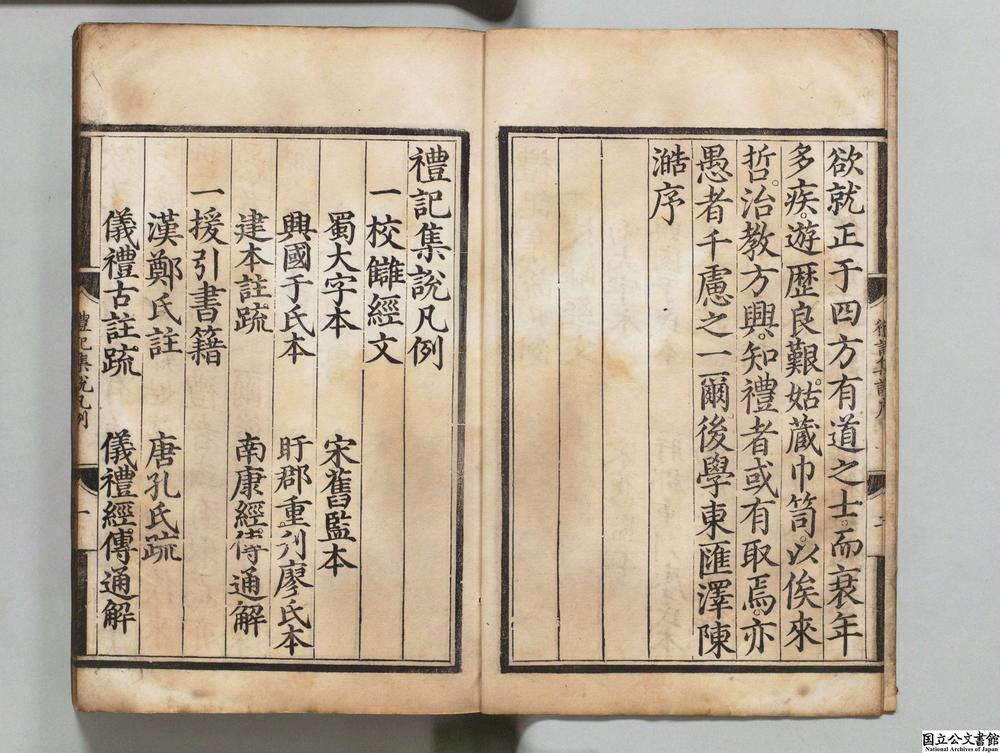 欲就正于四方有道之士。而衰年
多疾。遊歴良艱。姑藏巾笥。以俟來
哲。治教方興。知禮者或有取焉。亦
愚者千慮之一爾。後學東匯澤陳
澔序
禮記集説凡例
一校讎經文
蜀大字本　宋舊監本
興國于氏本　盱郡重刋廖氏本
建本註疏　南康經傳通解
一援引書籍
漢鄭氏註　唐孔氏疏
儀禮古註疏　儀禮經傳通解
禮記集說凡例
一
国立公文書館
National Archives of Japan